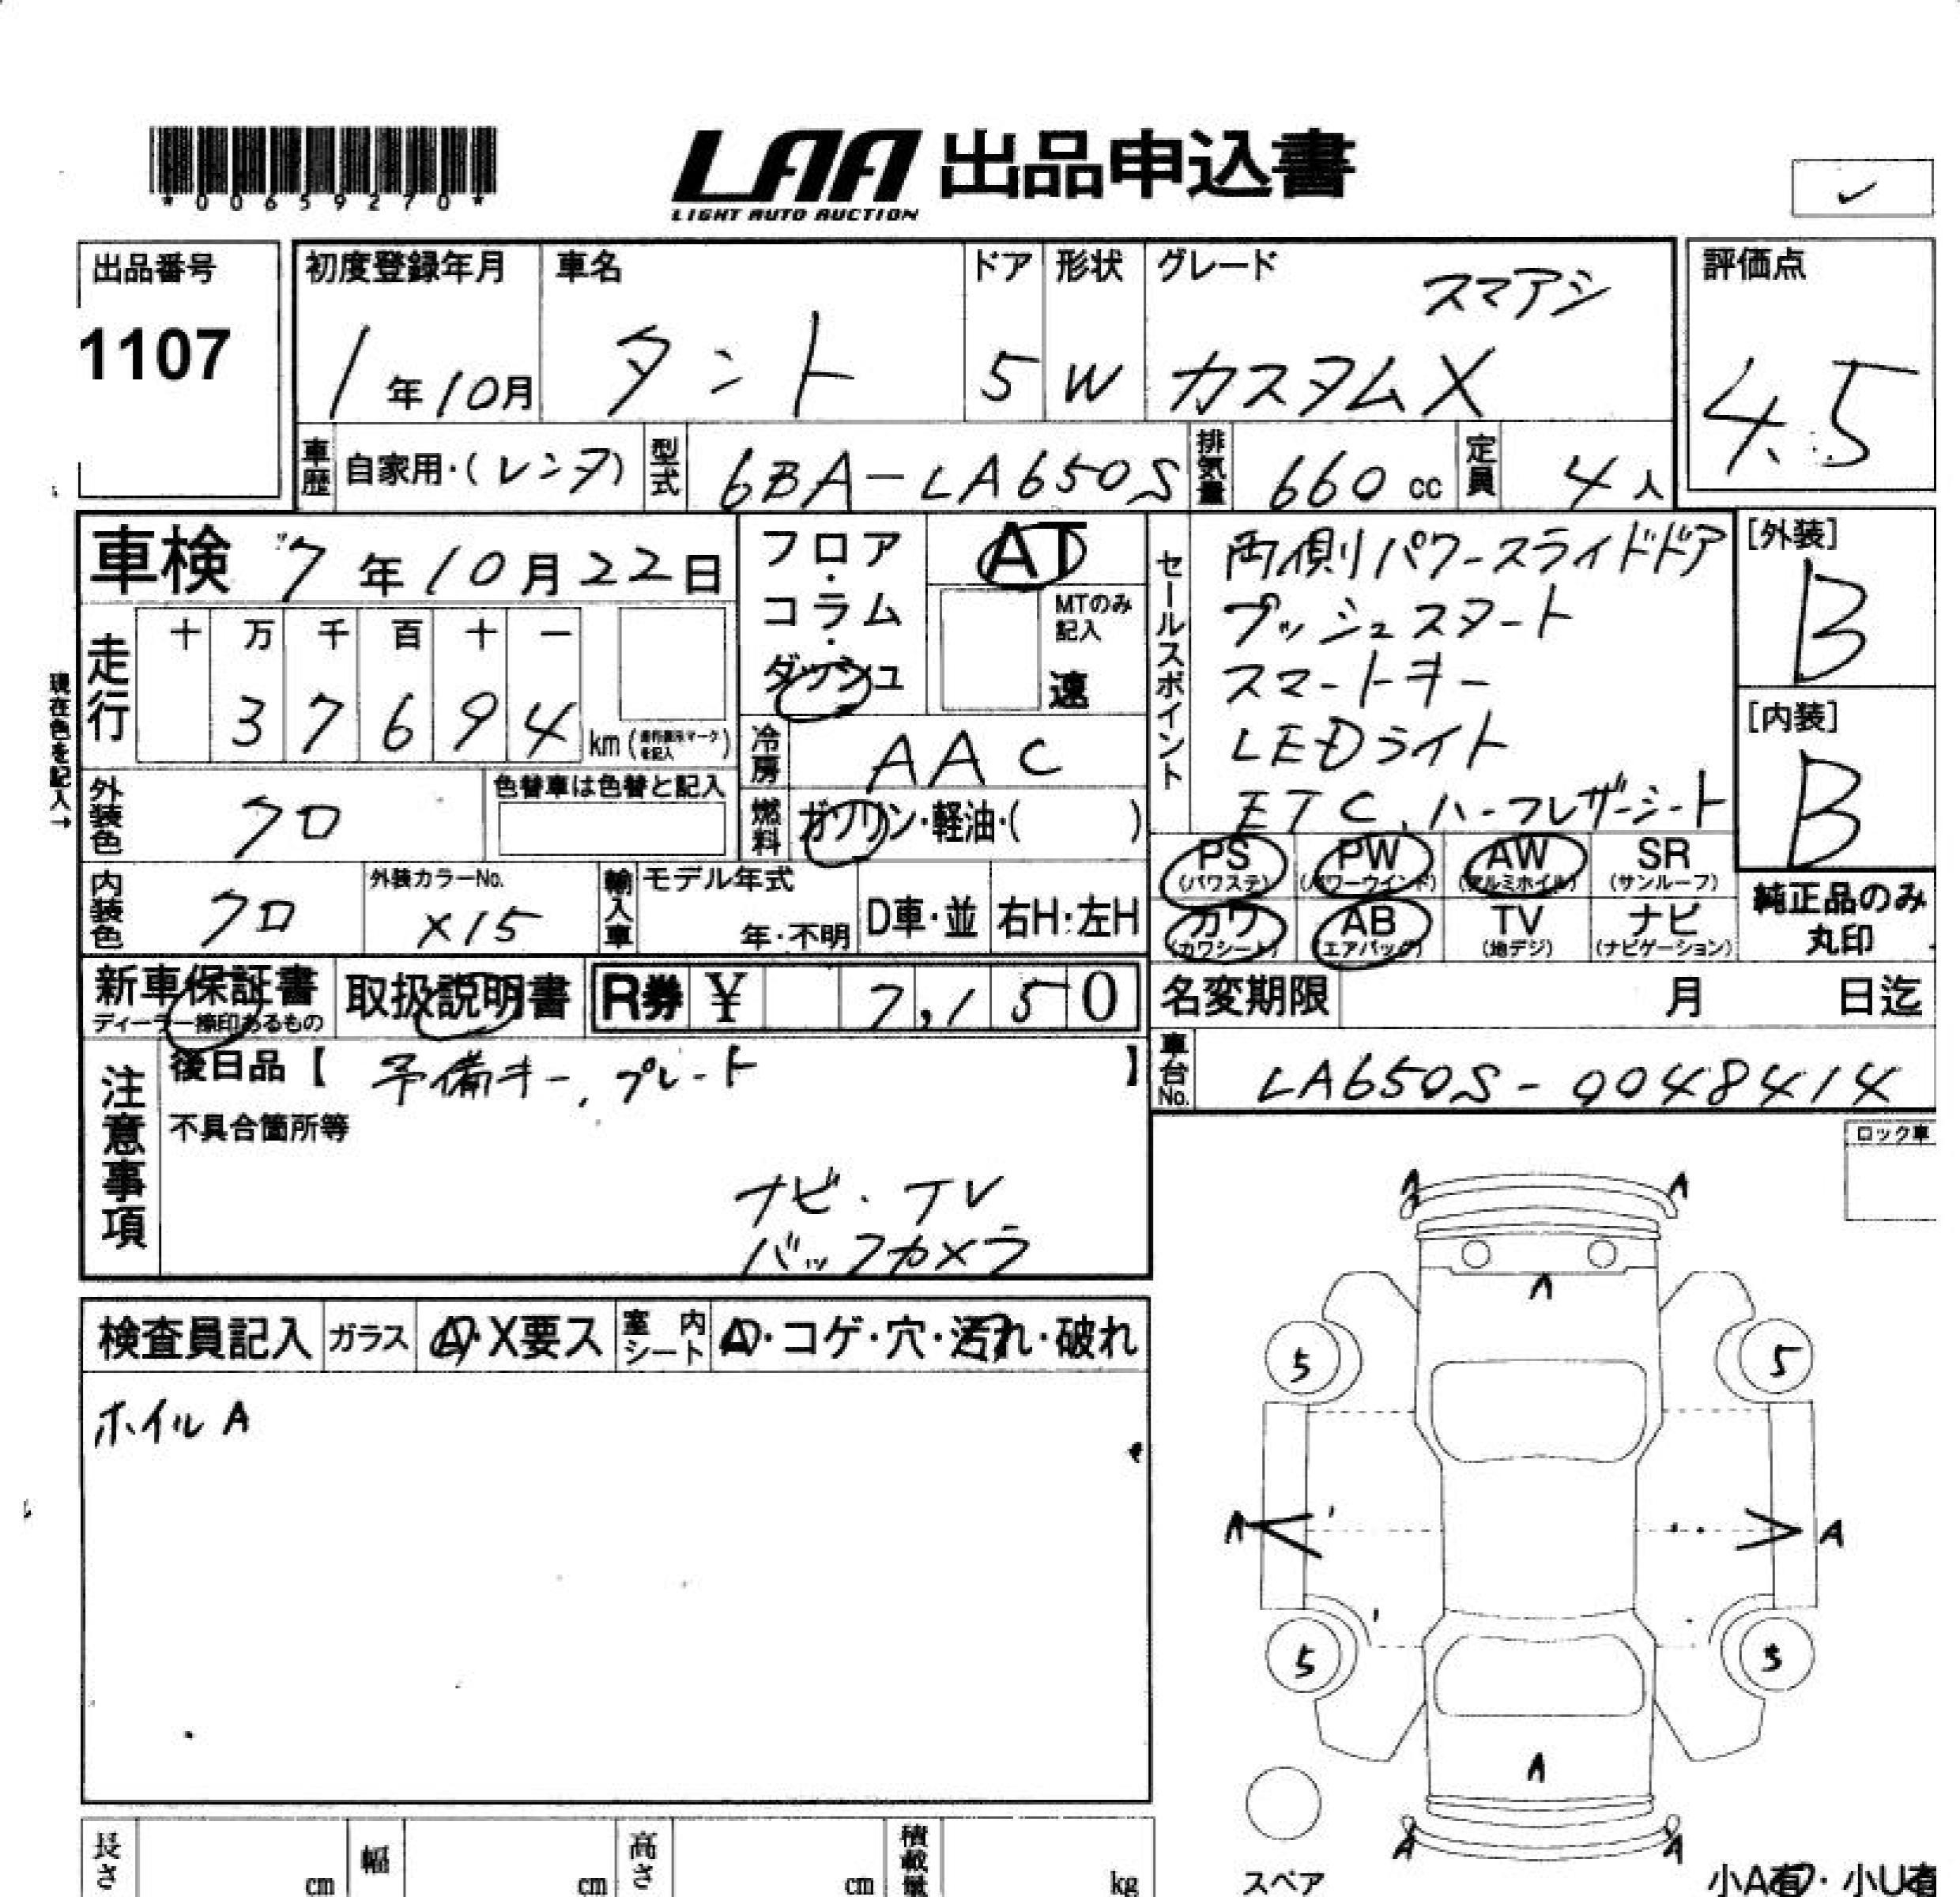 *00659270*
LAA 出品申込書
LIGHT AUTO AUCTION
✓
出品番号
1107
初度登録年月
1年10月
車名
タント
ドア
5
形状
W
グレード
スマアシ
カスタムX
評価点
4.5
車歴
自家用・(レンタ)
型式
6BA-LA650S
排気量
660cc
定員
4人
車検 7年10月22日
フロア・コラム・ダッシュ
AT
MTのみ記入
速
セールスポイント
両側パワースライドドア
プッシュスタート
スマートキー
LEDライト
ETC、ハーフレザーシート
[外装]
B
[内装]
B
現在色を記入→
走行
十 万 千 百 十 一
3 7 6 9 4 km
冷房
AAC
燃料
ガソリン・軽油・( )
外装色
クロ
色替車は色替と記入
内装色
クロ
外装カラーNo.
X15
輸入車
モデル年式
年・不明
D車・並
右H・左H
PS
(パワステ)
PW
(パワーウインド)
AW
(アルミホイル)
SR
(サンルーフ)
カワ
(カワシート)
AB
(エアバッグ)
TV
(地デジ)
ナビ
(ナビゲーション)
純正品のみ
丸印
新車保証書
ディーラー捺印あるもの
取扱説明書
R券 ¥ 7,150
名変期限 月 日迄
注意事項
後日品【 予備キー、プレート 】
車台No.
LA650S-0048414
不具合箇所等
ナビ・TV
バックカメラ
ロック車
検査員記入
ガラス
A・X要ス
室内シート
A・コゲ・穴・汚れ・破れ
ホイルA
A A
A
5 5
A A
5 5
A
A A
スペア
小A有・小U有
長さ cm
幅 cm
高さ cm
積載量 kg